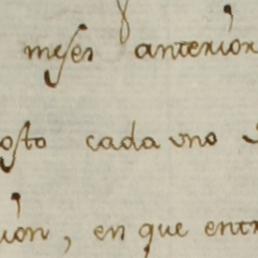 meses anterior
osto cada uno
ion, en que entr